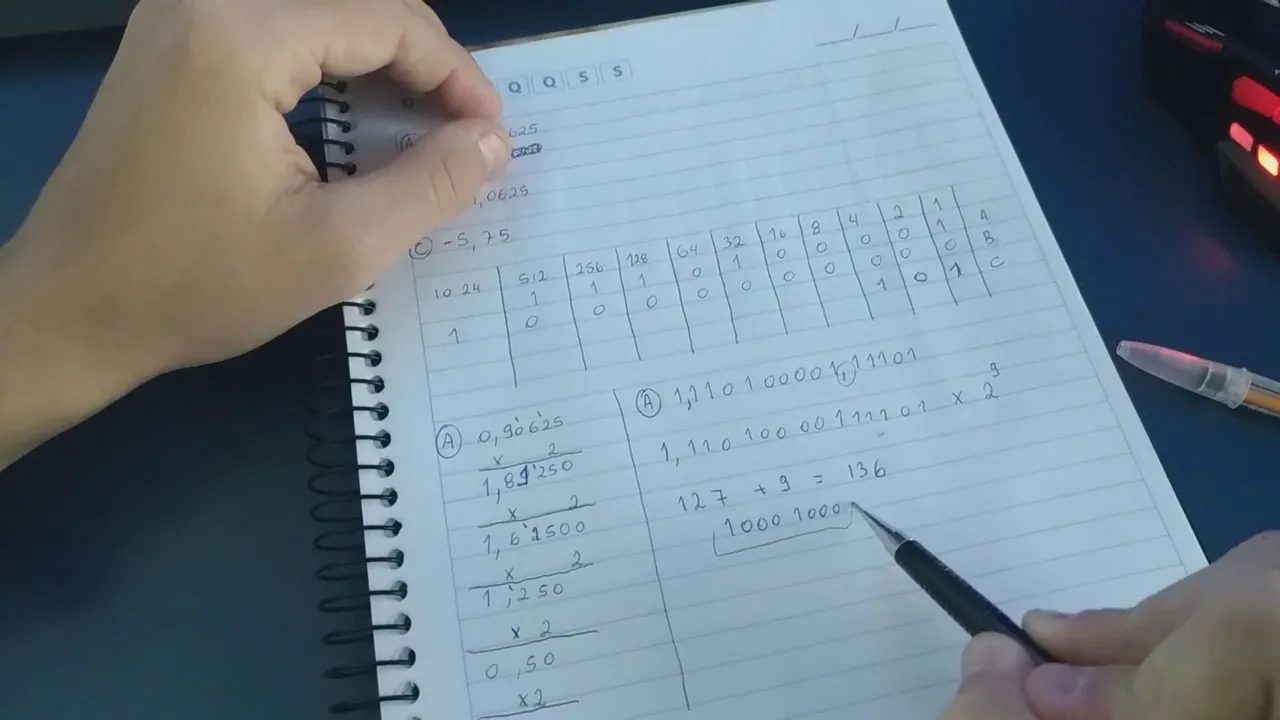 __/__/__
Q Q S S
A 625
,0625
C -5,75
1024 512 256 128 64 32 16 8 4 2 1
1 1 1 0 1 0 0 0 0 1 A
1 0 0 0 0 0 0 0 0 0 0 B
1 0 1 C
A 0,90625
x 2
1,81250
x 2
1,62500
x 2
1,250
x 2
0,50
x2
A 1,110100001,11101
1,11010000111101 x 2 9
127 + 9 = 136
1000 1000